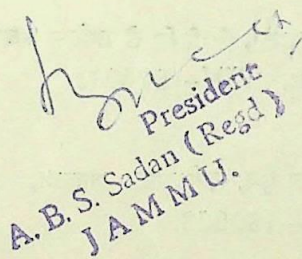 President
A. B. S. Sadan (Regd)
JAMMU.